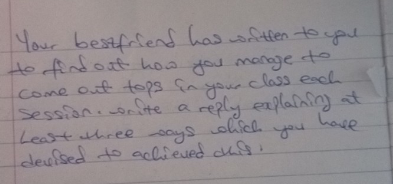 Your bestfriend has written to you
to find out how you manage to
come out tops in your class each
session. write a reply explaining at
least three ways which you have
devised to achieved this.